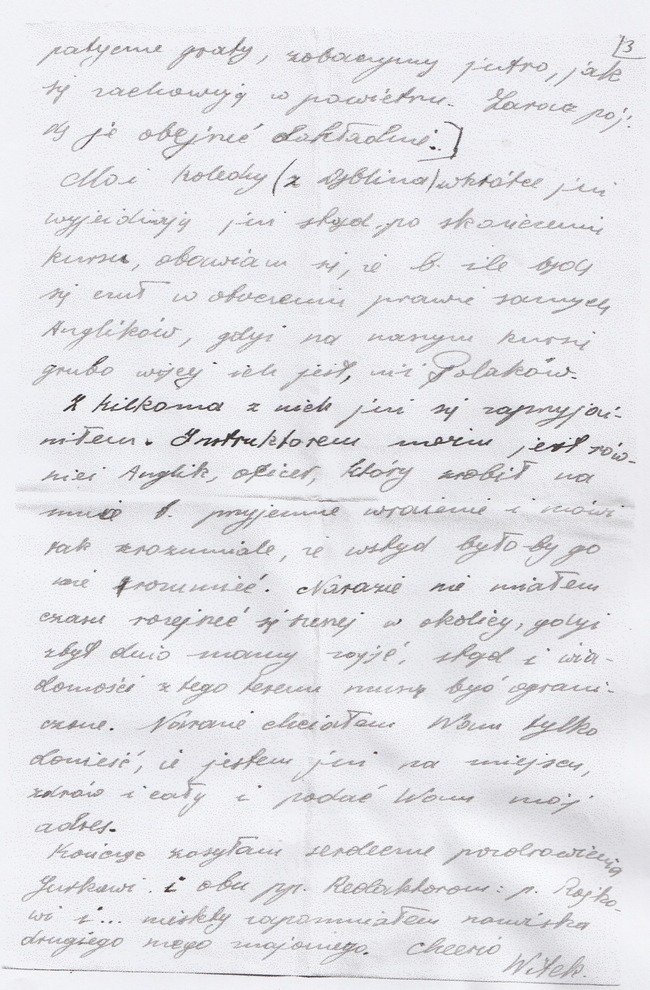 3
patyczne graty, zobaczymy jutro, jak
się zachowują w powietrzu. Zaraz pój-
dę je obejrzeć dokładnie.]
Moi koledzy (z Dęblina) wkrótce już
wyjeżdżają już stąd, po skończeniu
kursu, obawiam się, że b. źle będę
się czuł w otoczeniu prawie samych
Anglików, gdyż na naszym kursie
grubo więcej ich jest, niż Polaków.
Z kilkoma z nich już się zaprzyjaź-
niłem. Instruktorem moim jest rów-
nież Anglik, oficer, który zrobił na
mnie b. przyjemne wrażenie i mówi
tak zrozumiale, że wstyd było-by go
nie zrozumieć. Narazie nie miałem
czasu rozejrzeć się szerzej w okolicy, gdyż
zbyt dużo mamy zajęć, stąd i wia-
domości z tego terenu muszą być ograni-
czone. Narazie chciałem Wam tylko
donieść, że jestem już na miejscu,
zdrów i cały i podać Wam mój
adres.
Kończąc zasyłam serdeczne pozdrowienia
Jurkowi i obu pp. Redaktorom: p. Rojko-
wi i... niestety zapomniałem nazwiska
drugiego mego znajomego. Cheerio
Witek.